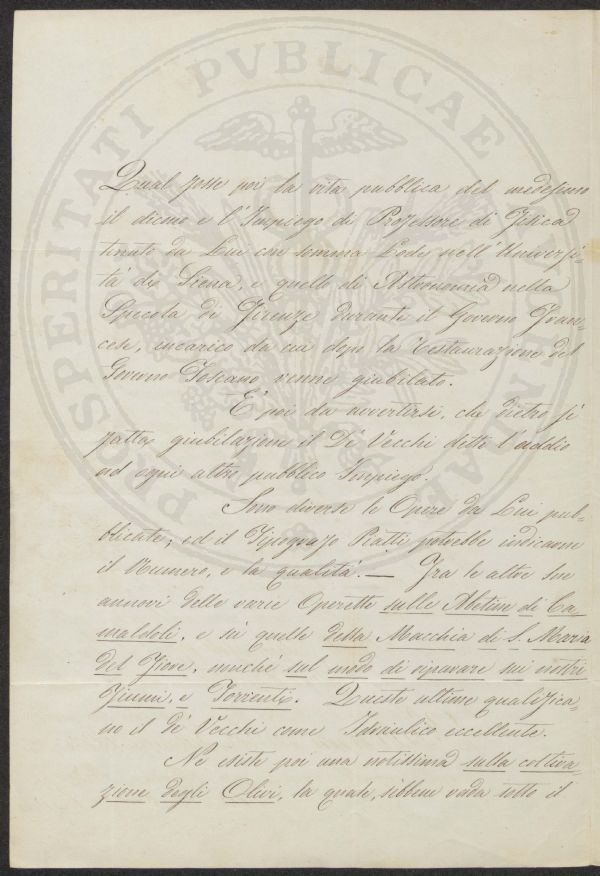 PROSPERITATI PVBLICAE AVGENDAE
Qual fosse poi la vita pubblica del medesimo
il dicono e l'Impiego di Professore di Fisica
tenuto da Lui con somma Lode nell'Universi=
tà di Siena, e quello di Astronomia nella
Specola di Firenze durante il Governo Fran=
cese, incarico da cui dopo la restaurazione del
Governo Toscano venne giubilato.
E' poi da avvertirsi, che dietro sì
fatta giubilazione il De' Vecchi dette l'addio
ad ogni altro pubblico Impiego.
Sono diverse le Opere da Lui pub=
blicate, ed il Tipografo Piatti potrebbe indicarne
il Numero, e la qualità. — Fra le altre sue
annovi delle varie Operette sulle Abetine di Ca=
maldoli, e su quelle della Macchia di S. Maria
del Fiore, nonché sul modo di riparare sui nostri
Fiumi, e Torrenti. Queste ultime qualifica=
no il de' Vecchi come Idraulico eccellente.
Ne esiste poi una notissima sulla coltiva=
zione degli Olivi, la quale, sibbene vada sotto il